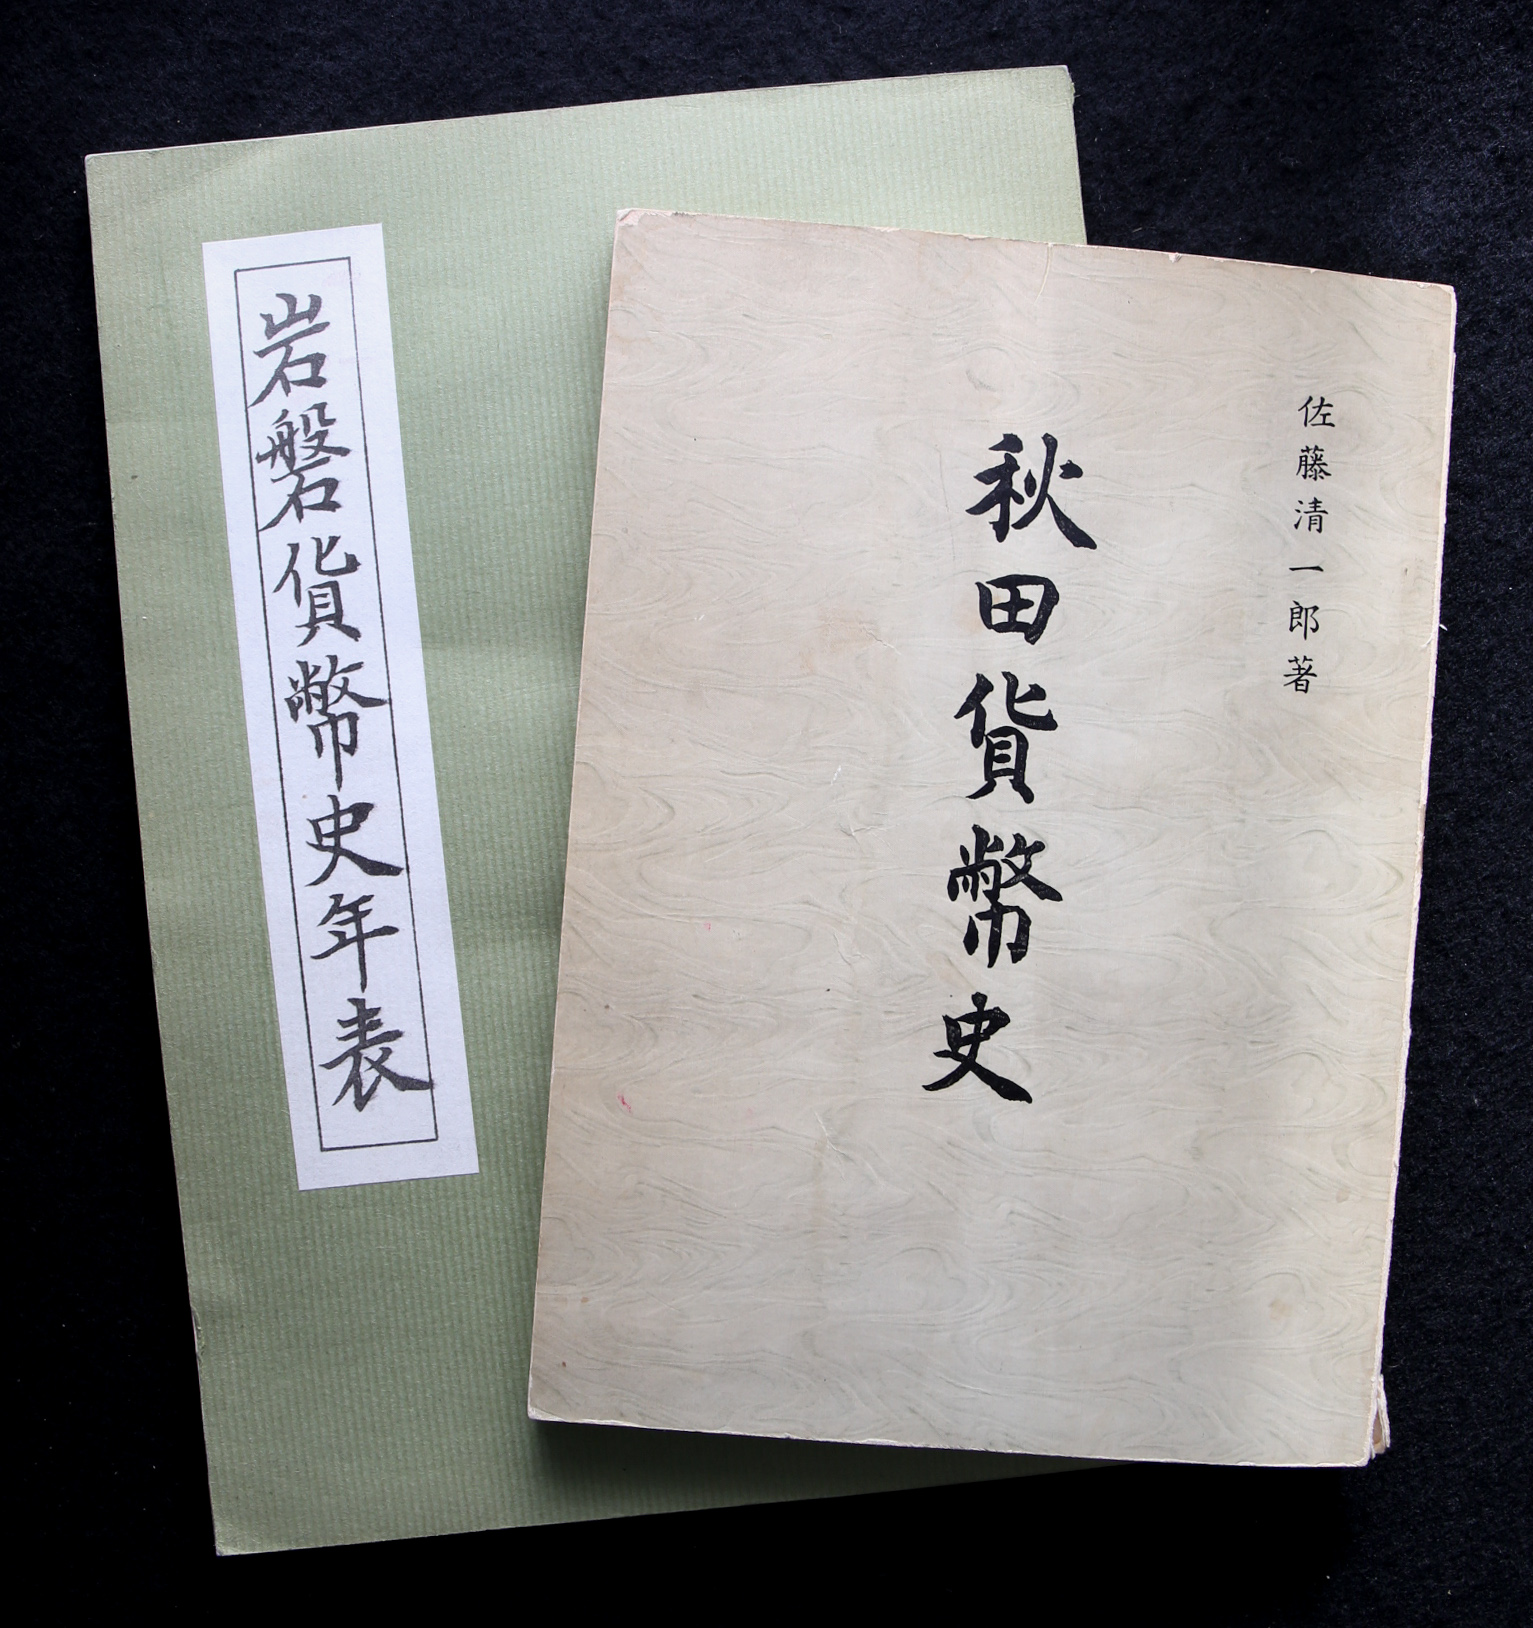 岩磐貨幣史年表
佐藤清一郎著
秋田貨幣史